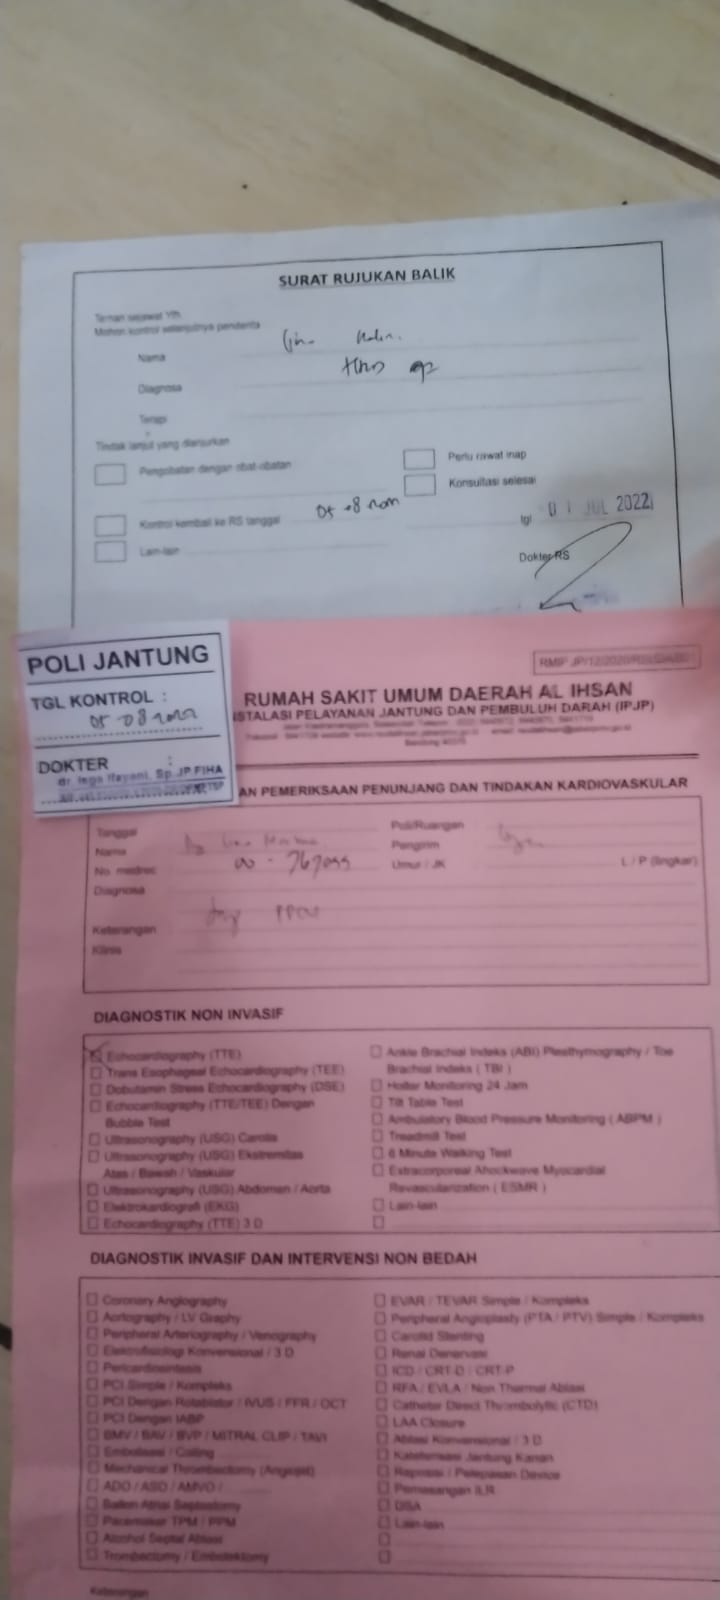 SURAT RUJUKAN BALIK
Teman sejawat Yth.
Mohon kontrol selanjutnya penderita
Nama
Diagnosa
Terapi
Tindak lanjut yang dianjurkan
Pengobatan dengan obat-obatan
Perlu rawat inap
Konsultasi selesai
Kontrol kembali ke RS tanggal 05-08-2022
tgl 01 JUL 2022
Lain-lain
Dokter RS
POLI JANTUNG
TGL KONTROL :
05 08 2022
DOKTER :
Sp.JP FIHA
RUMAH SAKIT UMUM DAERAH AL IHSAN
INSTALASI PELAYANAN JANTUNG DAN PEMBULUH DARAH (IPJP)
AN PEMERIKSAAN PENUNJANG DAN TINDAKAN KARDIOVASKULAR
Tanggal
Poli/Ruangan
Nama
Pengirim
No. medrec
Umur / JK
L / P (lingkari)
Diagnosa
Keterangan
Klinis
DIAGNOSTIK NON INVASIF
Echocardiography (TTE)
Trans Esophageal Echocardiography (TEE)
Dobutamin Stress Echocardiography (DSE)
Echocardiography (TTE/TEE) Dengan
Bubble Test
Ultrasonography (USG) Carotis
Ultrasonography (USG) Ekstremitas
Atas / Bawah / Vaskular
Ultrasonography (USG) Abdomen / Aorta
Elektrokardiografi (EKG)
Echocardiography (TTE) 3 D
Ankle Brachial Indeks (ABI) Plesthymography / Toe
Brachial Indeks ( TBI )
Holter Monitoring 24 Jam
Tilt Table Test
Ambulatory Blood Pressure Monitoring ( ABPM )
Treadmill Test
6 Minute Walking Test
Extracorporeal Ahockwave Myocardial
Revascularization ( ESMR )
Lain-lain
DIAGNOSTIK INVASIF DAN INTERVENSI NON BEDAH
Coronary Angiography
Aortography / LV Graphy
Peripheral Arteriography / Venography
Elektrofisiologi Konvensional / 3 D
Pericardiosintesis
PCI Simple / Kompleks
PCI Dengan Rotablator / IVUS / FFR / OCT
PCI Dengan IABP
BMV / BAV / BVP / MITRAL CLIP / TAVI
Embolisasi / Coiling
Mechanical Thrombectomy (Angiojet)
ADO / ASD / AMVO /
Ballon Atrial Septostomy
Pacemaker TPM / PPM
Alcohol Septal Ablasi
Trombectomy / Embolektomy
EVAR / TEVAR Simple / Kompleks
Peripheral Angioplasty (PTA / PTV) Simple / Kompleks
Carotid Stenting
Renal Denervasi
ICD / CRT-D / CRT-P
RFA / EVLA / Non Thermal Ablasi
Catheter Direct Thrombolytic (CTD)
LAA Closure
Ablasi Konvensional / 3 D
Kateterisasi Jantung Kanan
Reposisi / Pelepasan Device
Pemasangan ILR
DSA
Lain-lain
Keterangan